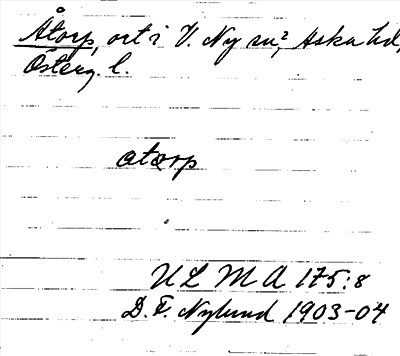 Åtorp, ort i V. Ny sn, Aska hd,
Österg. l.
atorp
ULMA 175:8
D. F. Nylund 1903-04